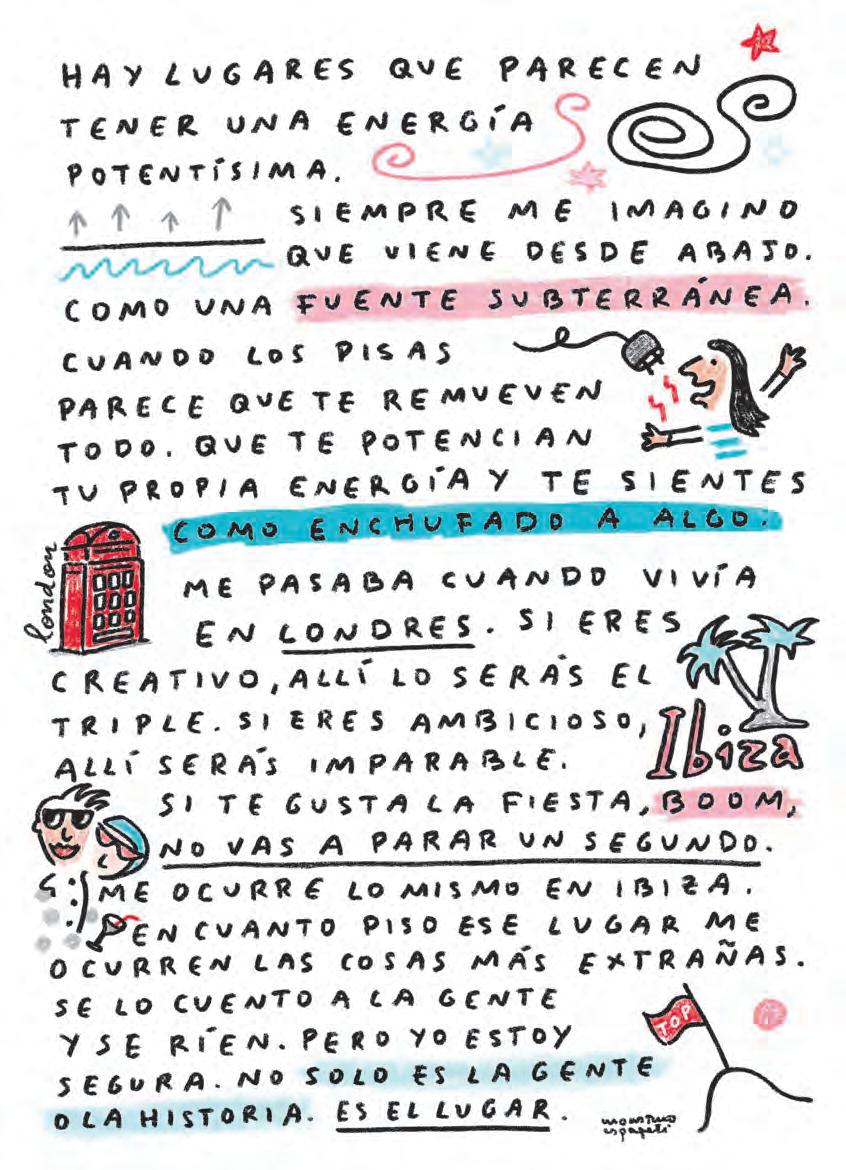 HAY LUGARES QUE PARECEN
TENER UNA ENERGÍA
POTENTÍSIMA.
SIEMPRE ME IMAGINO
QUE VIENE DESDE ABAJO.
COMO UNA FUENTE SUBTERRÁNEA.
CUANDO LOS PISAS
PARECE QUE TE REMUEVEN
TODO. QUE TE POTENCIAN
TU PROPIA ENERGÍA Y TE SIENTES
COMO ENCHUFADO A ALGO.
london
ME PASABA CUANDO VIVÍA
EN LONDRES. SI ERES
CREATIVO, ALLÍ LO SERÁS EL
TRIPLE. SI ERES AMBICIOSO,
ALLÍ SERÁS IMPARABLE.
Ibiza
SI TE GUSTA LA FIESTA, BOOM,
NO VAS A PARAR UN SEGUNDO.
ME OCURRE LO MISMO EN IBIZA.
EN CUANTO PISO ESE LUGAR ME
OCURREN LAS COSAS MÁS EXTRAÑAS.
SE LO CUENTO A LA GENTE
Y SE RÍEN. PERO YO ESTOY
SEGURA. NO SOLO ES LA GENTE
O LA HISTORIA. ES EL LUGAR.
TOP
monstruo
espagueti